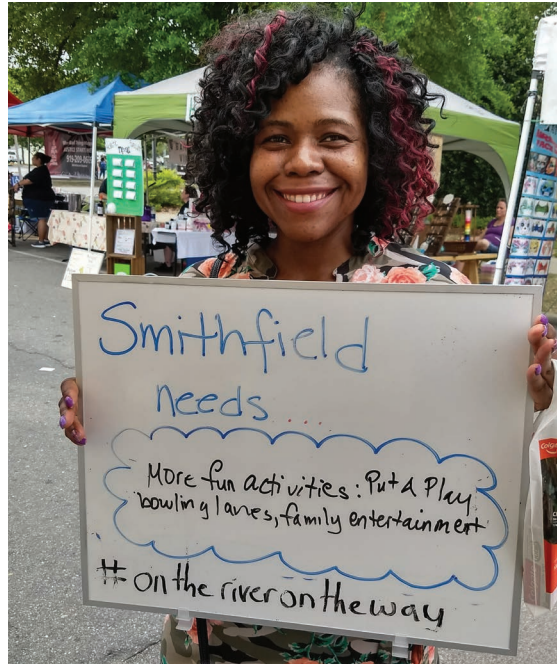 Smithfield
needs...
More fun activities: Put & Play
bowling lanes, family entertainment
#ontheriverontheway